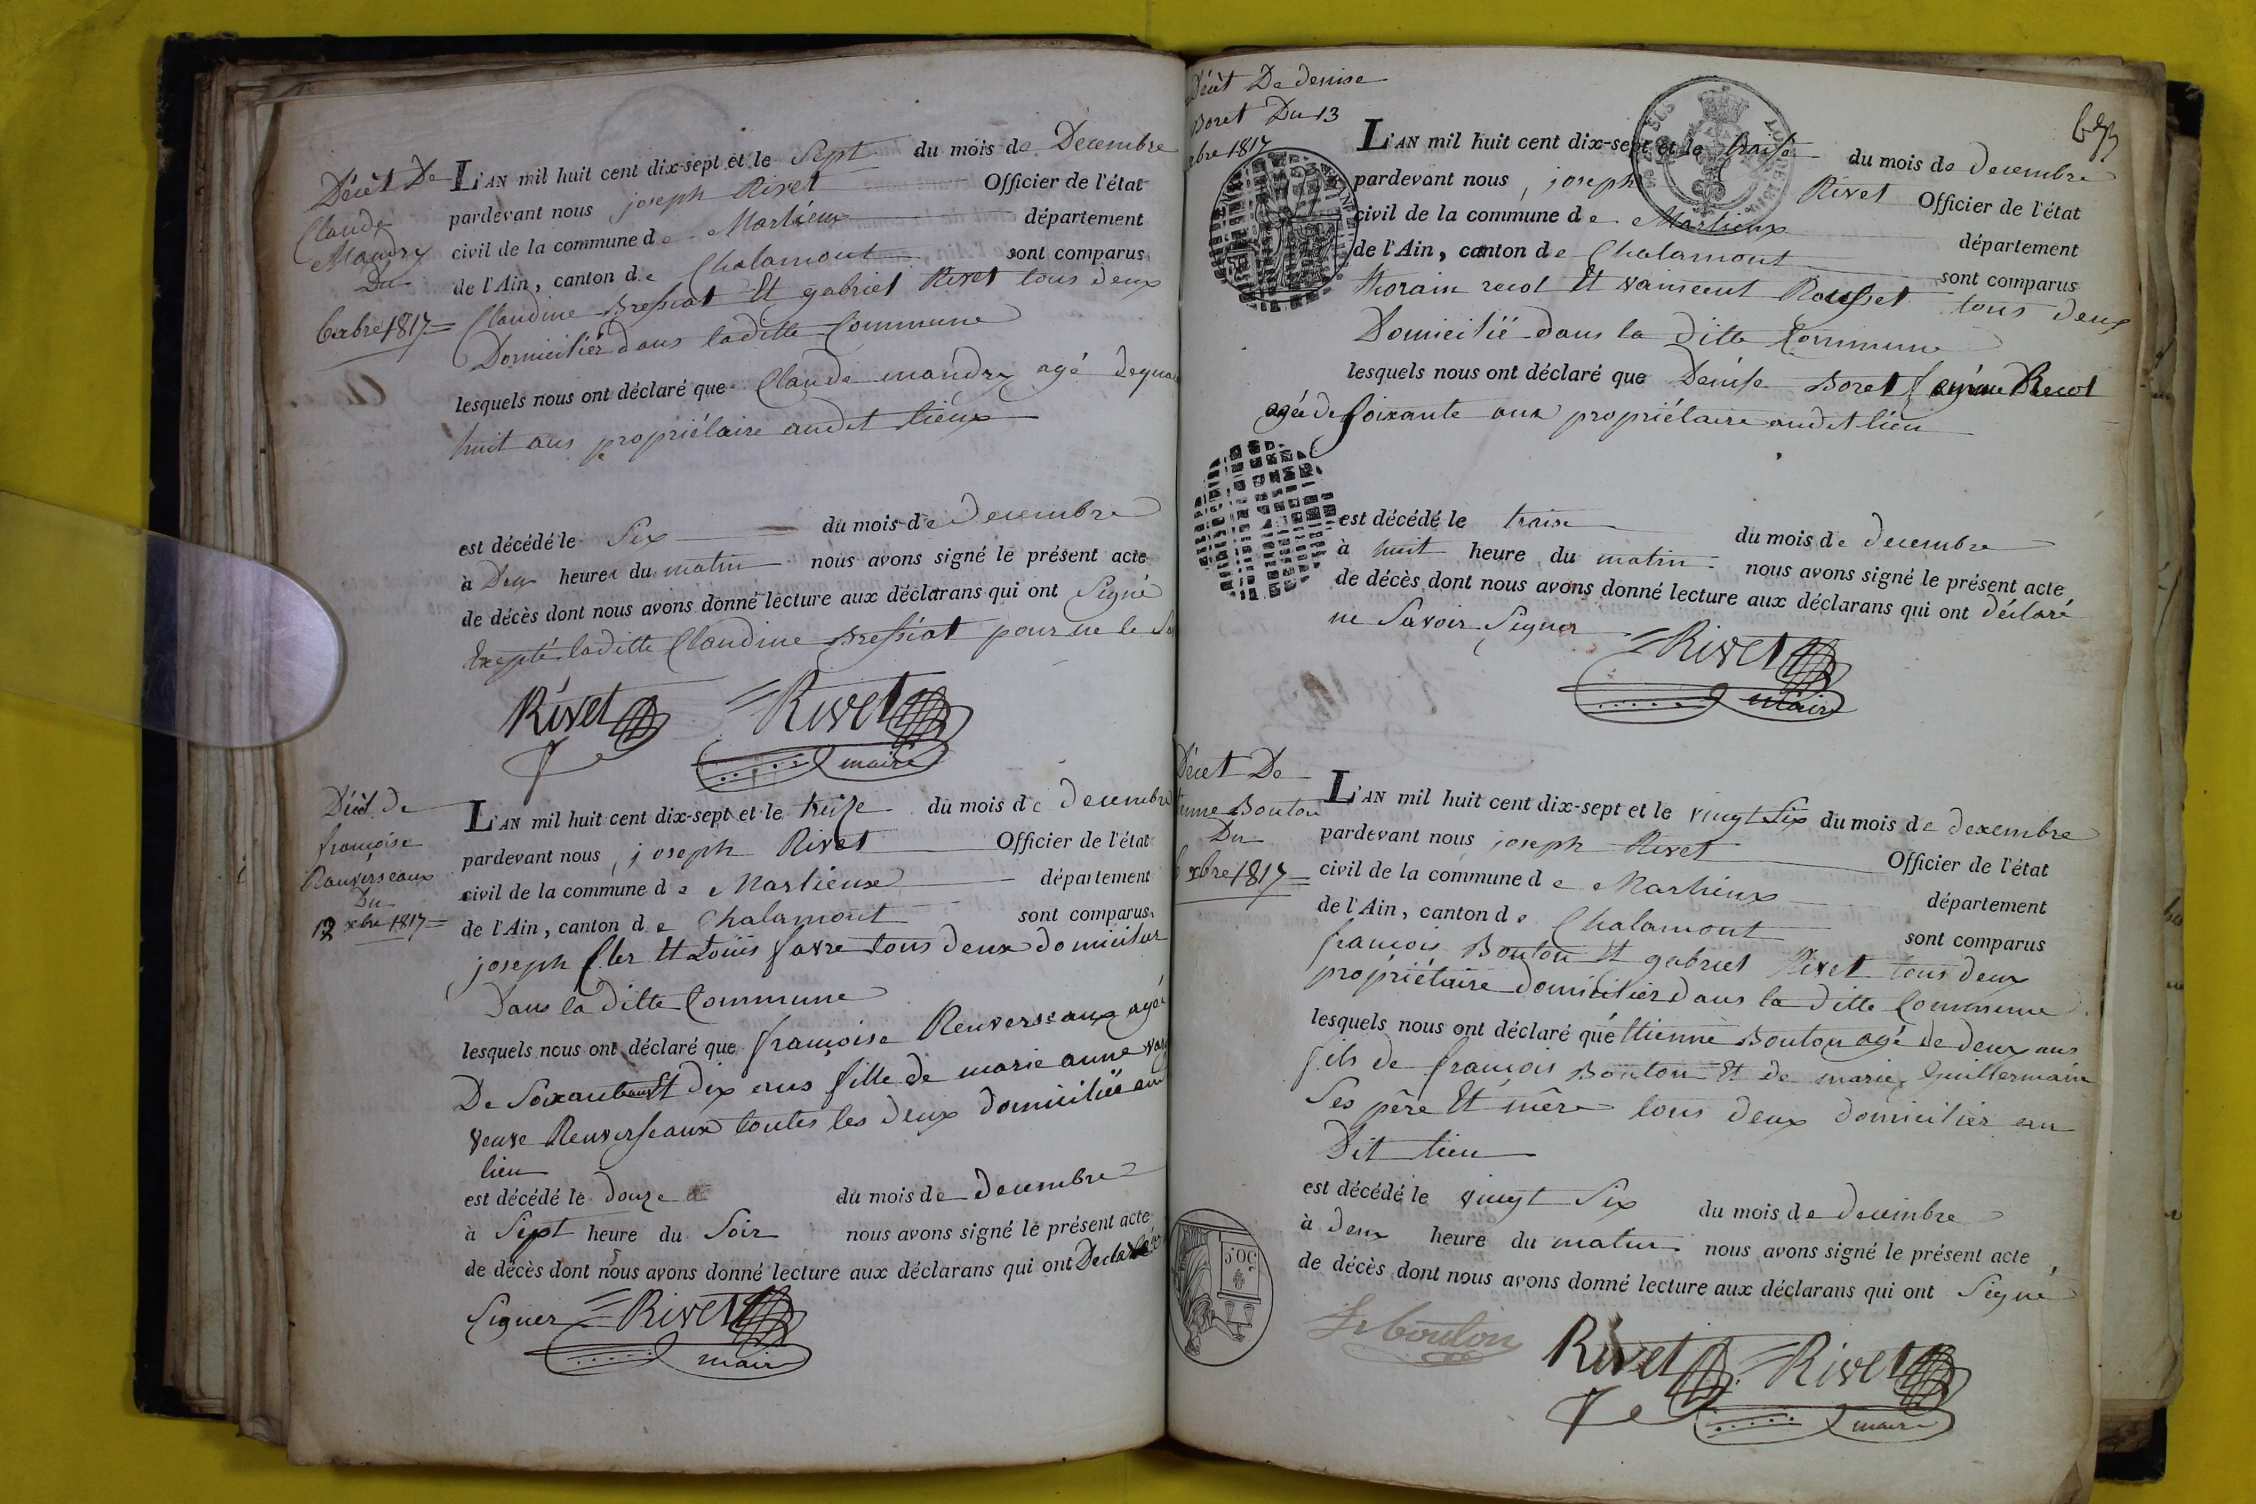 Décèt De
Claude
Mandry
Du
6 xbre 1817
L'AN mil huit cent dix-sept et le Sept du mois de Decembre
pardevant nous joseph Rivet Officier de l'état
civil de la commune de Marlieux département
de l'Ain, canton de Chalamont sont comparus
Claudine Bressiat Et gabriel Rivet tous deux
Domiciliér dans laditte Commune
lesquels nous ont déclaré que Claude mandry agé
huit ans propriétaire audit lieux
est décédé le Six du mois de Decembre
à Deux heures du matin nous avons signé le présent acte
de décès dont nous avons donné lecture aux déclarans qui ont Signé
Excepté laditte Claudine Bressiat pour ne le
Rivet Rivet
maire
Décèt de
françoise
Rauverseaux
Du
12 xbre 1817
L'AN mil huit cent dix-sept et le treize du mois de decembre
pardevant nous joseph Rivet Officier de l'état
civil de la commune de Marlieux département
de l'Ain, canton de Chalamont sont comparus
joseph Et Louis favre tous deux
Dans la Ditte Commune
lesquels nous ont déclaré que françoise Renverseaux agée
De Soixante Et dix ans fille de marie anne
veuve Renverseaux toutes les deux domiciliée au
lieu
est décédé le douze du mois de decembre
à Sept heure du Soir nous avons signé le présent acte
de décès dont nous avons donné lecture aux déclarans qui ont
Signer Rivet
maire
Décèt De denise
Boret Du 13
xbre 1817
L'AN mil huit cent dix-sept et le traise du mois de decembre
pardevant nous joseph Rivet Officier de l'état
civil de la commune de Marlieux département
de l'Ain, canton de Chalamont sont comparus
Et vainsent Rousset tous deux
Domicilié dans la ditte Commune
lesquels nous ont déclaré que Denise Boret
agée de soixante ans propriétaire audit lieu
est décédé le traise du mois de decembre
à huit heure du matin nous avons signé le présent acte
de décès dont nous avons donné lecture aux déclarans qui ont déclaré
ne Savoir Signer
Rivet
maire
Décèt De
Bouton
Du
xbre 1817
L'AN mil huit cent dix-sept et le vingt Six du mois de decembre
pardevant nous joseph Rivet Officier de l'état
civil de la commune de Marlieux département
de l'Ain, canton de Chalamont sont comparus
françois Bouton Et gabriel Rivet tous deux
propriétaire domiciliér dans la ditte Commune
lesquels nous ont déclaré que Etienne Bouton agé de deux ans
fils de françois Bouton Et de marie Guillermain
Ses père Et mère tous deux domiciliér au
Dit lieu
est décédé le vingt Six du mois de decembre
à deux heure du matin nous avons signé le présent acte
de décès dont nous avons donné lecture aux déclarans qui ont Signé
50C
bouton Rivet Rivet
maire